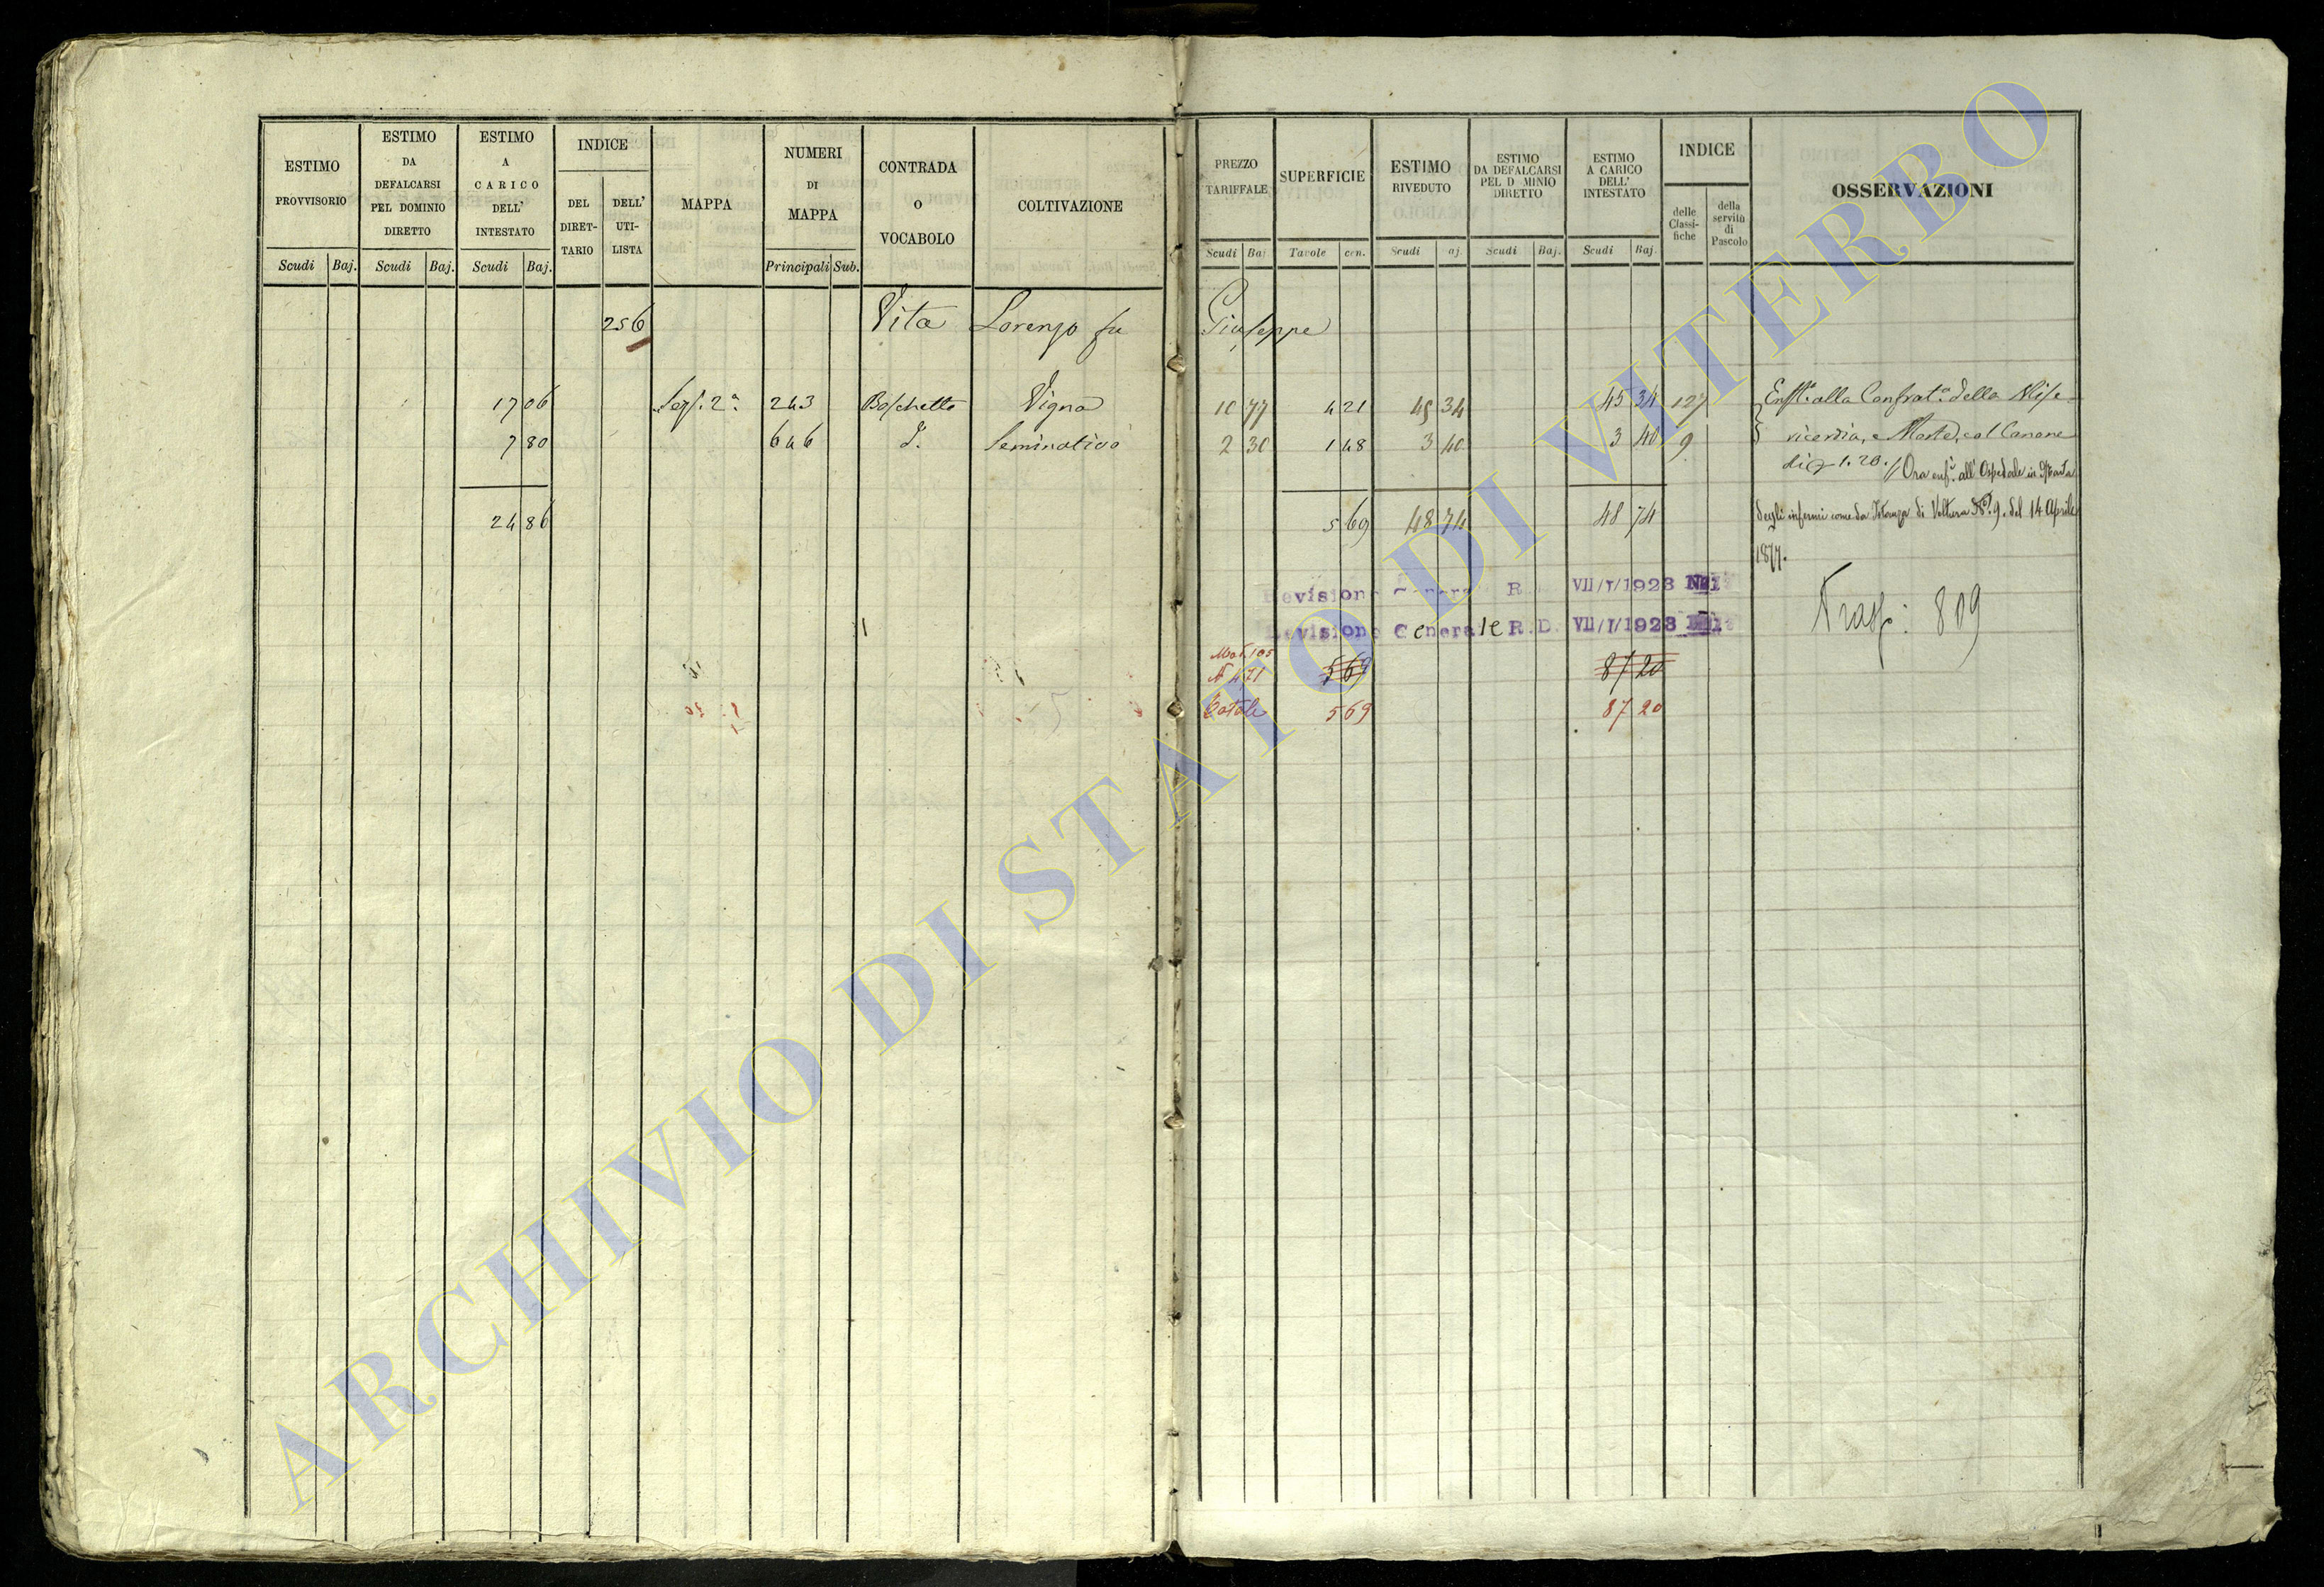 ESTIMO PROVVISORIO
ESTIMO DA DEFALCARSI PEL DOMINIO DIRETTO
ESTIMO A CARICO DELL' INTESTATO
INDICE
DEL DIRET-TARIO
DELL' UTI-LISTA
MAPPA
NUMERI DI MAPPA
CONTRADA O VOCABOLO
COLTIVAZIONE
PREZZO TARIFFALE
SUPERFICIE
ESTIMO RIVEDUTO
ESTIMO DA DEFALCARSI PEL D MINIO DIRETTO
ESTIMO A CARICO DELL' INTESTATO
INDICE
delle Classi-fiche
della servitù di Pascolo
OSSERVAZIONI
Scudi Baj. Scudi Baj. Scudi Baj. Principali Sub.
Scudi Baj Tavole cen. Scudi aj. Scudi Baj. Scudi Baj.
256 Vita Lorenzo fu Giuseppe
17 06 Sez. 2a. 243 Boschetto Vigna 10 77 4 21 45 34 45 34 127
7 80 646 d. Seminativo 2 30 1 48 3 40 3 40 9
24 86 5 69 48 74 48 74
Enft.a alla Confrat.a della Mise-
ricordia, e Morte, col Canone
di 1.20. // Ora enf. all' Ospedale in
degli infermi come da Istanza di Voltura No. 9. del 14 Aprile
1877.
Revisione Genera R. VII/I/1923
Revisione Generale R.D. VII/I/1923
Trasp: 809
Mod. 105
N 471 5 69 87 20
Totale 5 69 87 20
ARCHIVIO DI STATO DI VITERBO